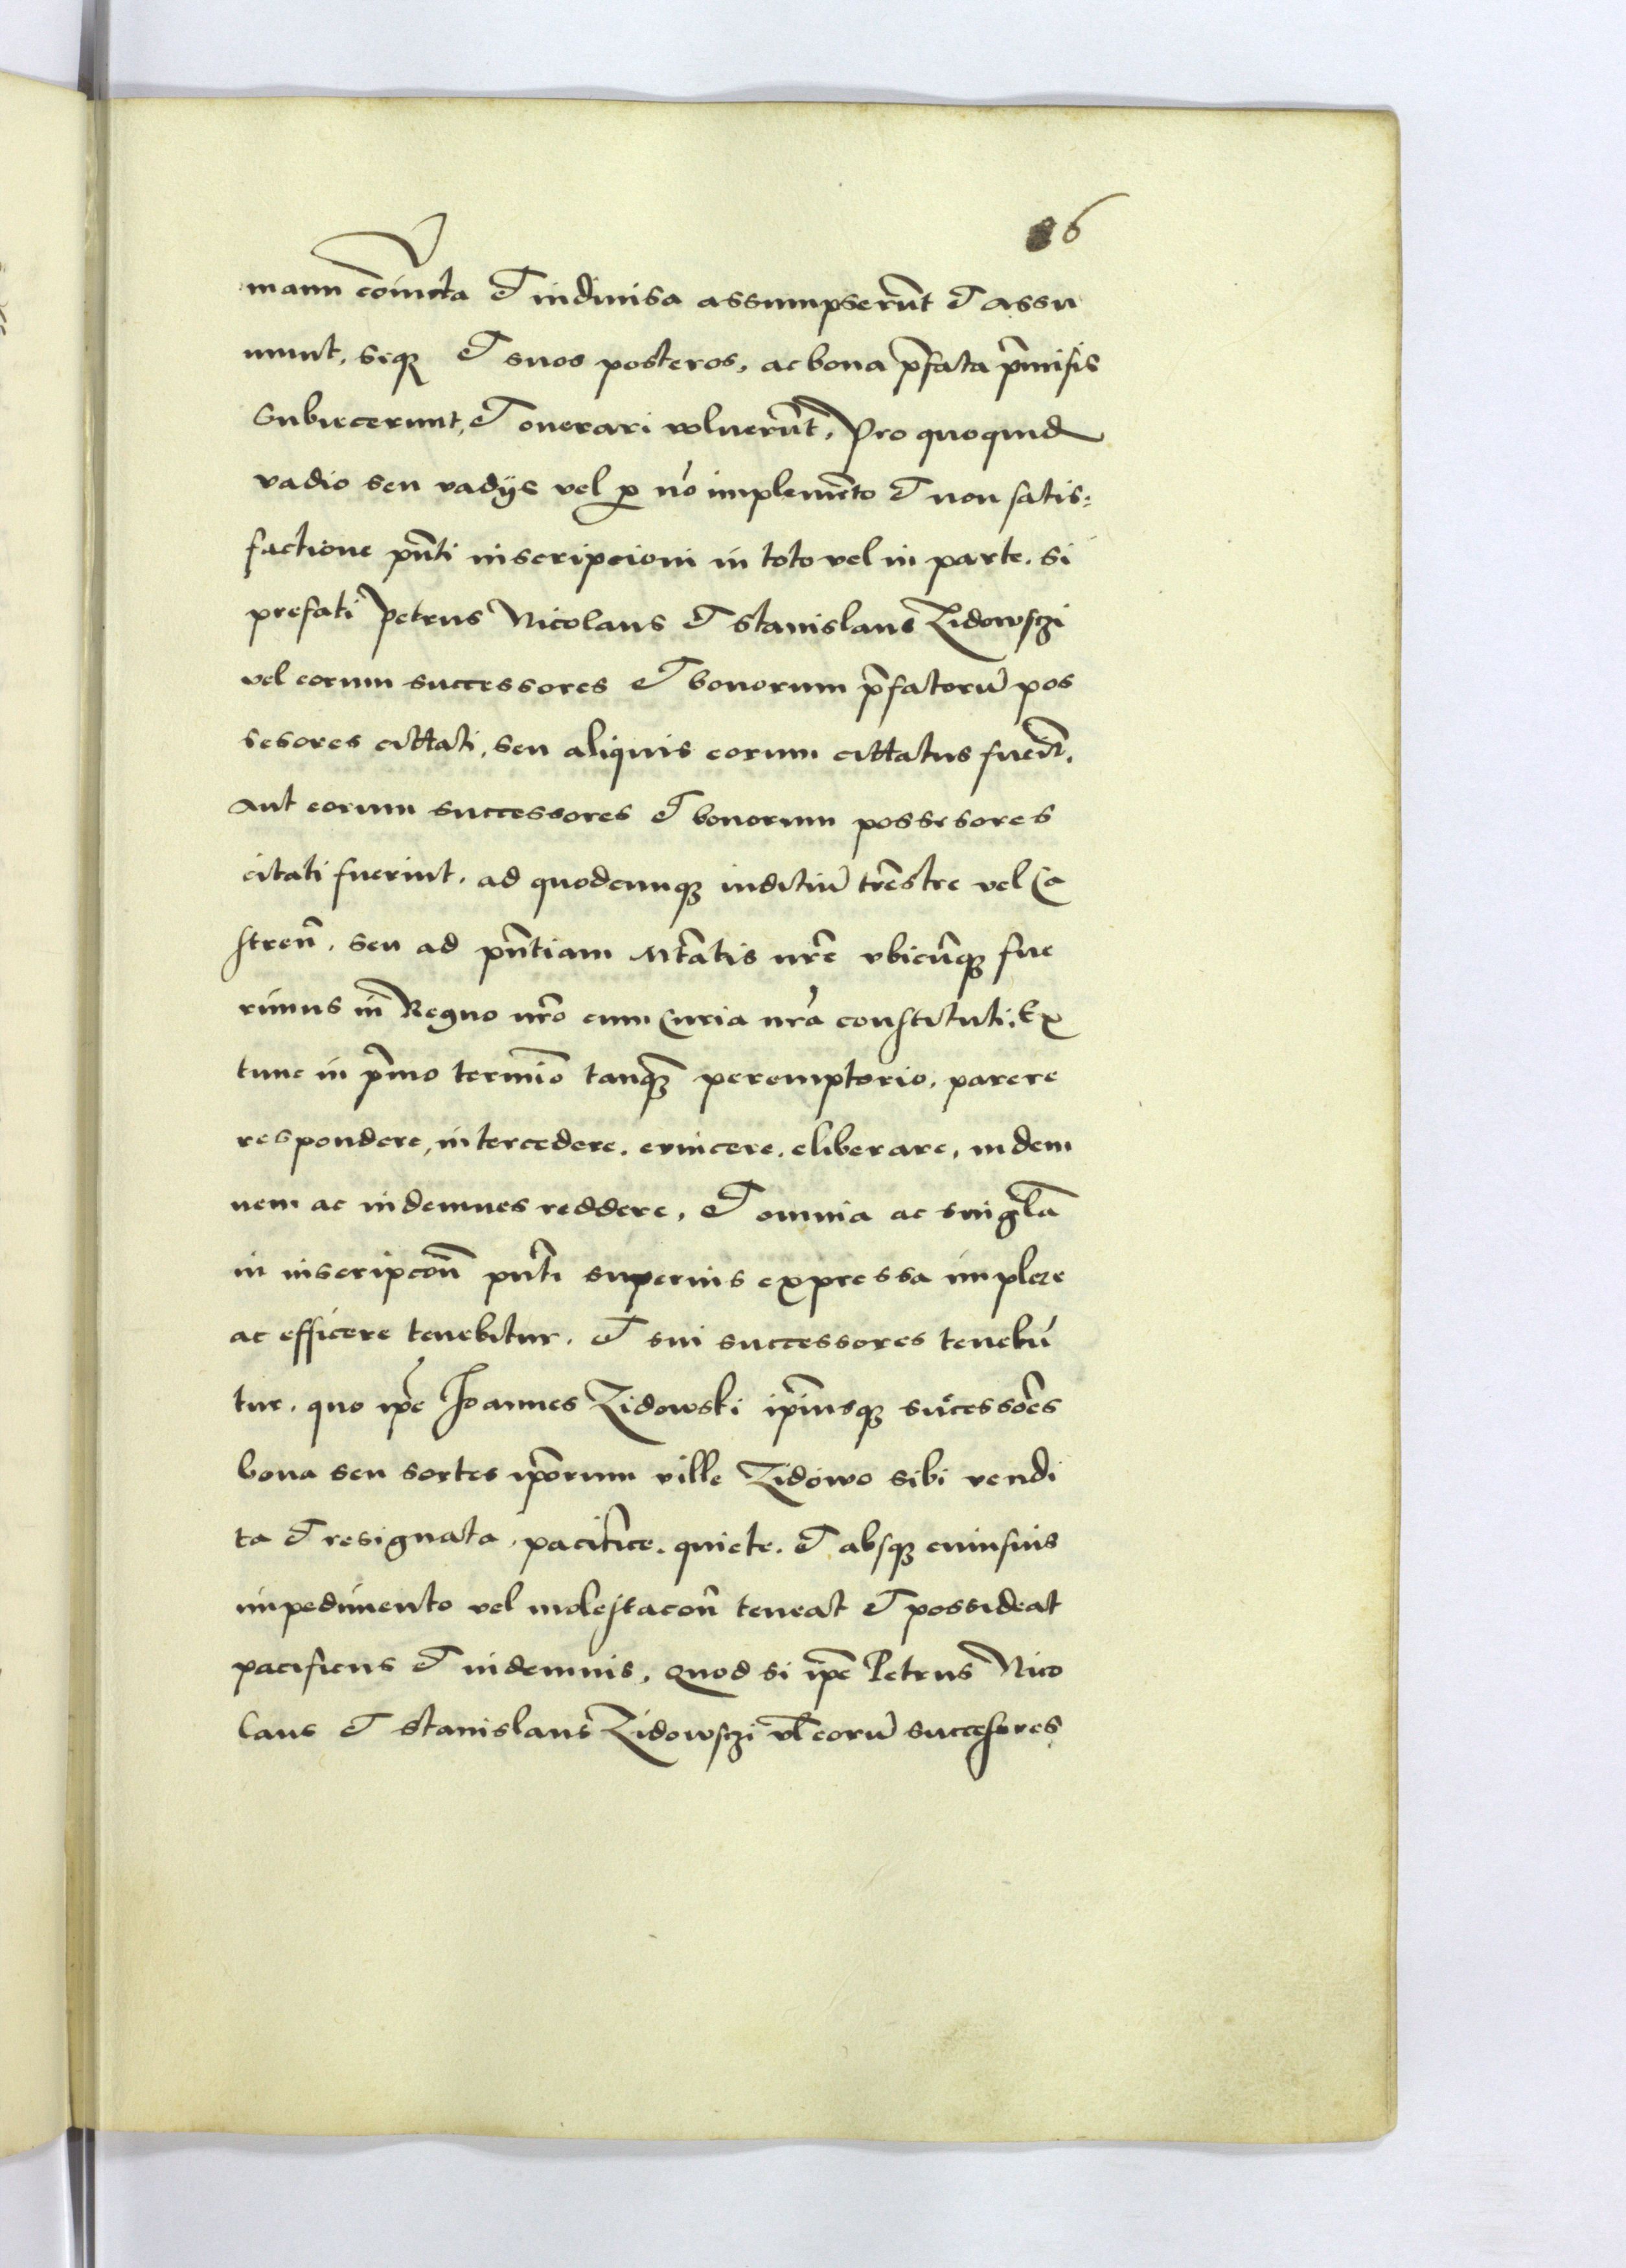 86
manu cōiuncta et indiuisa assumpserūt et assu
munt, seqꝫ et suos posteros, ac bona p̄fata p̄missis
Subiecerunt, et onerari voluerūt, Pro quoquid
vadio seu vadijs vel ꝑ nō implemēto et non satis:
factione pn̄ti inscripcioni in toto vel in parte. si
prefati Petrus Nicolaus et Stanislaus Zidowsczi
vel eorum successores et bonorum p̄fatorū pos
sesores cittati, seu aliquis eorum cittatus fuerīt.
aut eorum successores et bonorum possesores
citati fuerint. ad quodcunqꝫ iuditiū trēstre vel Ca
streñ. seu ad pn̄tiam Mtātis nr̄e vbicūqꝫ fue
rimus in Regno nr̄o cum Curia nr̄a constituti. Ex
tunc in pīmo termīo tanqꝫ peremptorio, parere
respondere, intercedere. euincere. eliberare, indem
nem ac indemnes reddere, et omnia ac singl̄a
in inscripcōn̄ pn̄ti superius expressa implere
ac efficere tenebitur. et sui successores tenebū
tur. quo ip̄e Joannes Zidowski ip̄iusqꝫ sucessōes
bona seu sortes ip̄orum ville Zidowo sibi vendi
ta et resignata, pacifice. quiete. et absqꝫ cuiusuis
impedimento vel molestacōn̄ teneat et possideat
pacificus et indemnis, Quod si ip̄e Petrus Nico
laus et Stanislaus Zidowsczi vl̄ eorū succesores